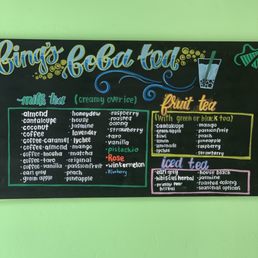 Bing's Boba tea
milk tea (creamy over ice)
-almond
-cantaloupe
-coconut
-coffee
-coffee-caramel
-coffee-almond
-coffee-mocha
-coffee-taro
-coffee-vanilla
-earl grey
-green apple
-honeydew
-house
-jasmine
-lavender
-lychee
-mango
-matcha
-original
-passionfruit
-peach
-pineapple
-raspberry
-roasted
oolong
-strawberry
-taro
-vanilla
-pistachio
-Rose
-wintermelon
-Blueberry
fruit tea
(with green or black tea)
-cantaloupe
-green apple
-kiwi
-lemon
-lychee
-mango
-passionfruit
-peach
-raspberry
-strawberry
iced tea
-earl grey
-hibiscus herbal
-house black
-jasmine
-roasted oolong
-seasonal options